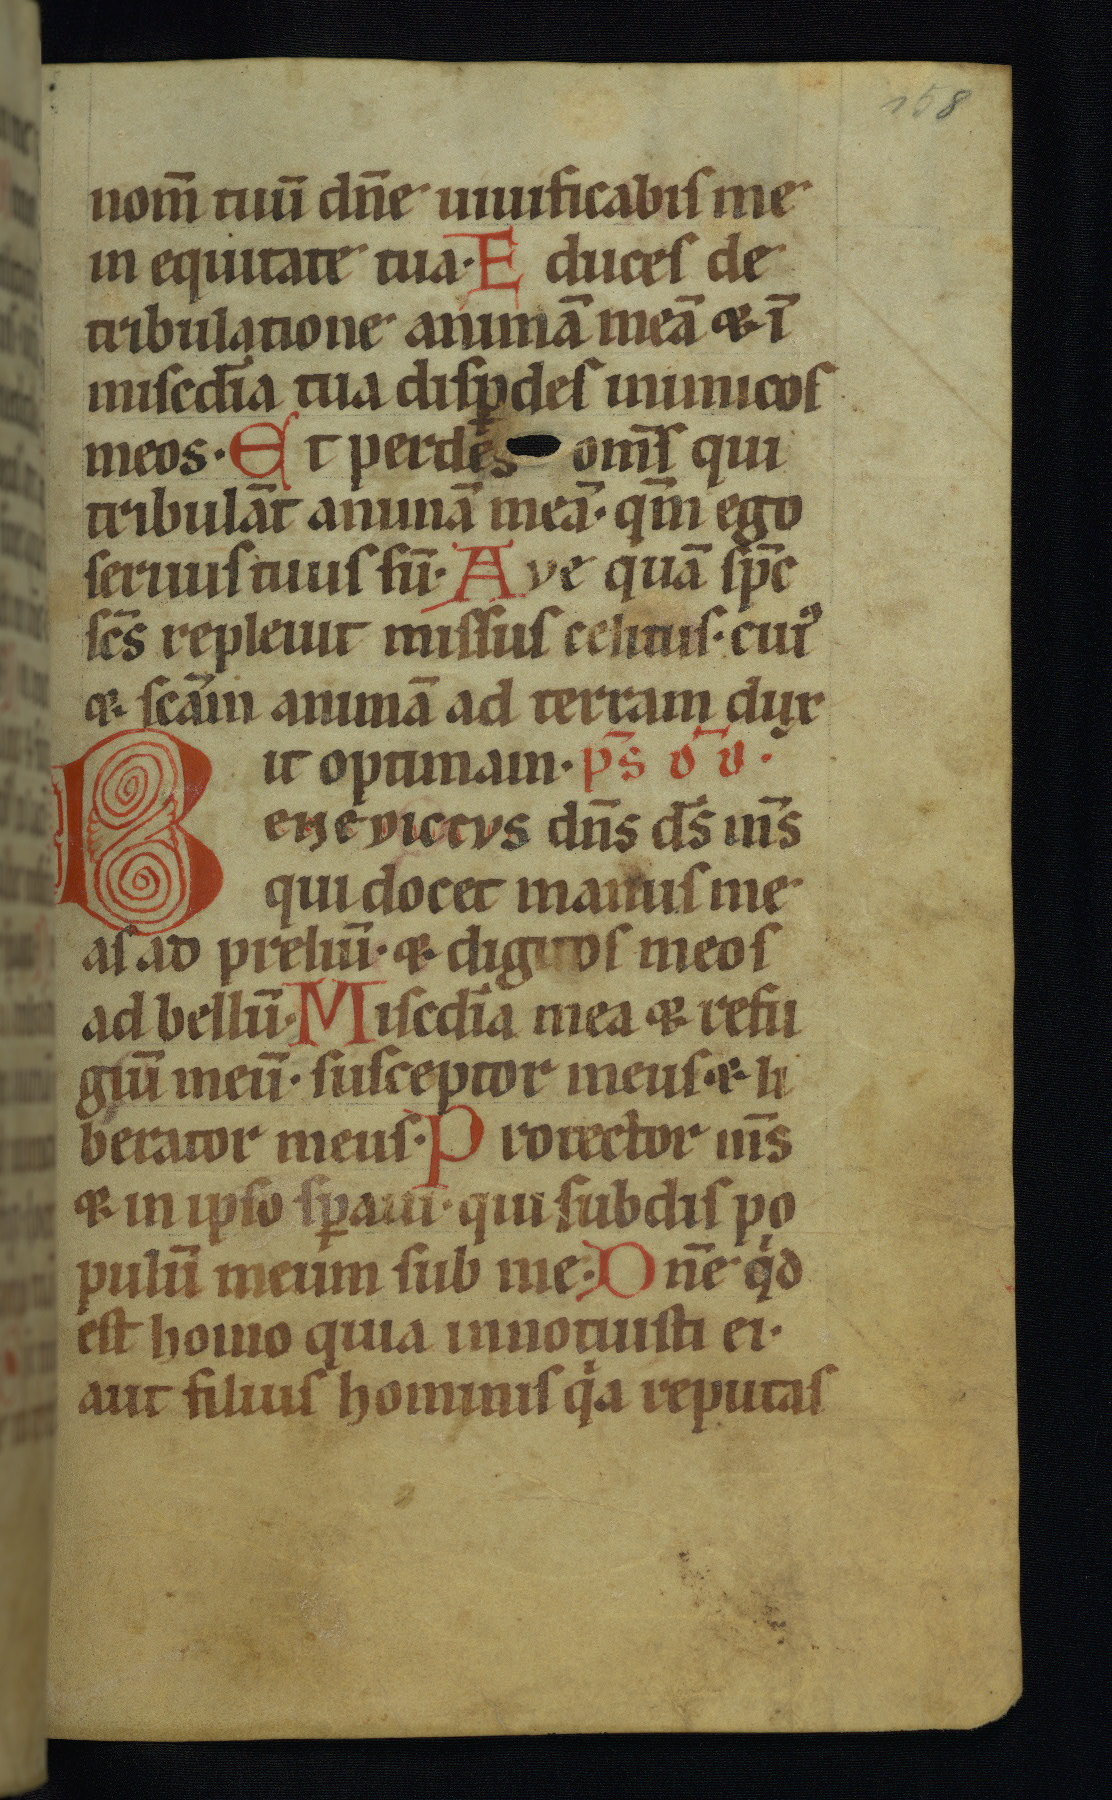 158
nom̄ tuū dn̄e uiuificabis me
in equitate tua. E duces de
tribulatione animā meā & ī
misc̄dia tua disp̱des inimicos
meos. Et perdes om̄s qui
tribulāt animā meā. qm̄ ego
seruus tuus sū. Ave quā sp̄c
sc̄s repleuit missus celitus. cuiꝰ
& scām animā ad terram dux
it optimam. p̄s d̄d.
Benedictus dn̄s ds̄ nr̄s
qui docet manus me
as ad preliū. & digitos meos
ad bellū. Misc̄dia mea & refu
giū meū. susceptor meus. & li
berator meus. Protector m̄s
& in ipso sꝑaui. qui subdis po
pulū meum sub me. Dn̄e qͥd
est homo quia innotuisti ei.
aut filius hominis qͥa reputas